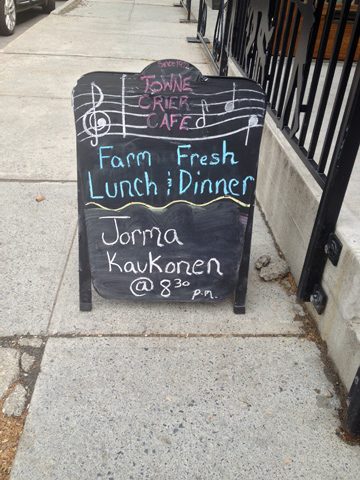 Since
TOWNE
CRIER
CAFE
Farm Fresh
Lunch & Dinner
Jorma
Kaukonen
@ 8 30 p.m.